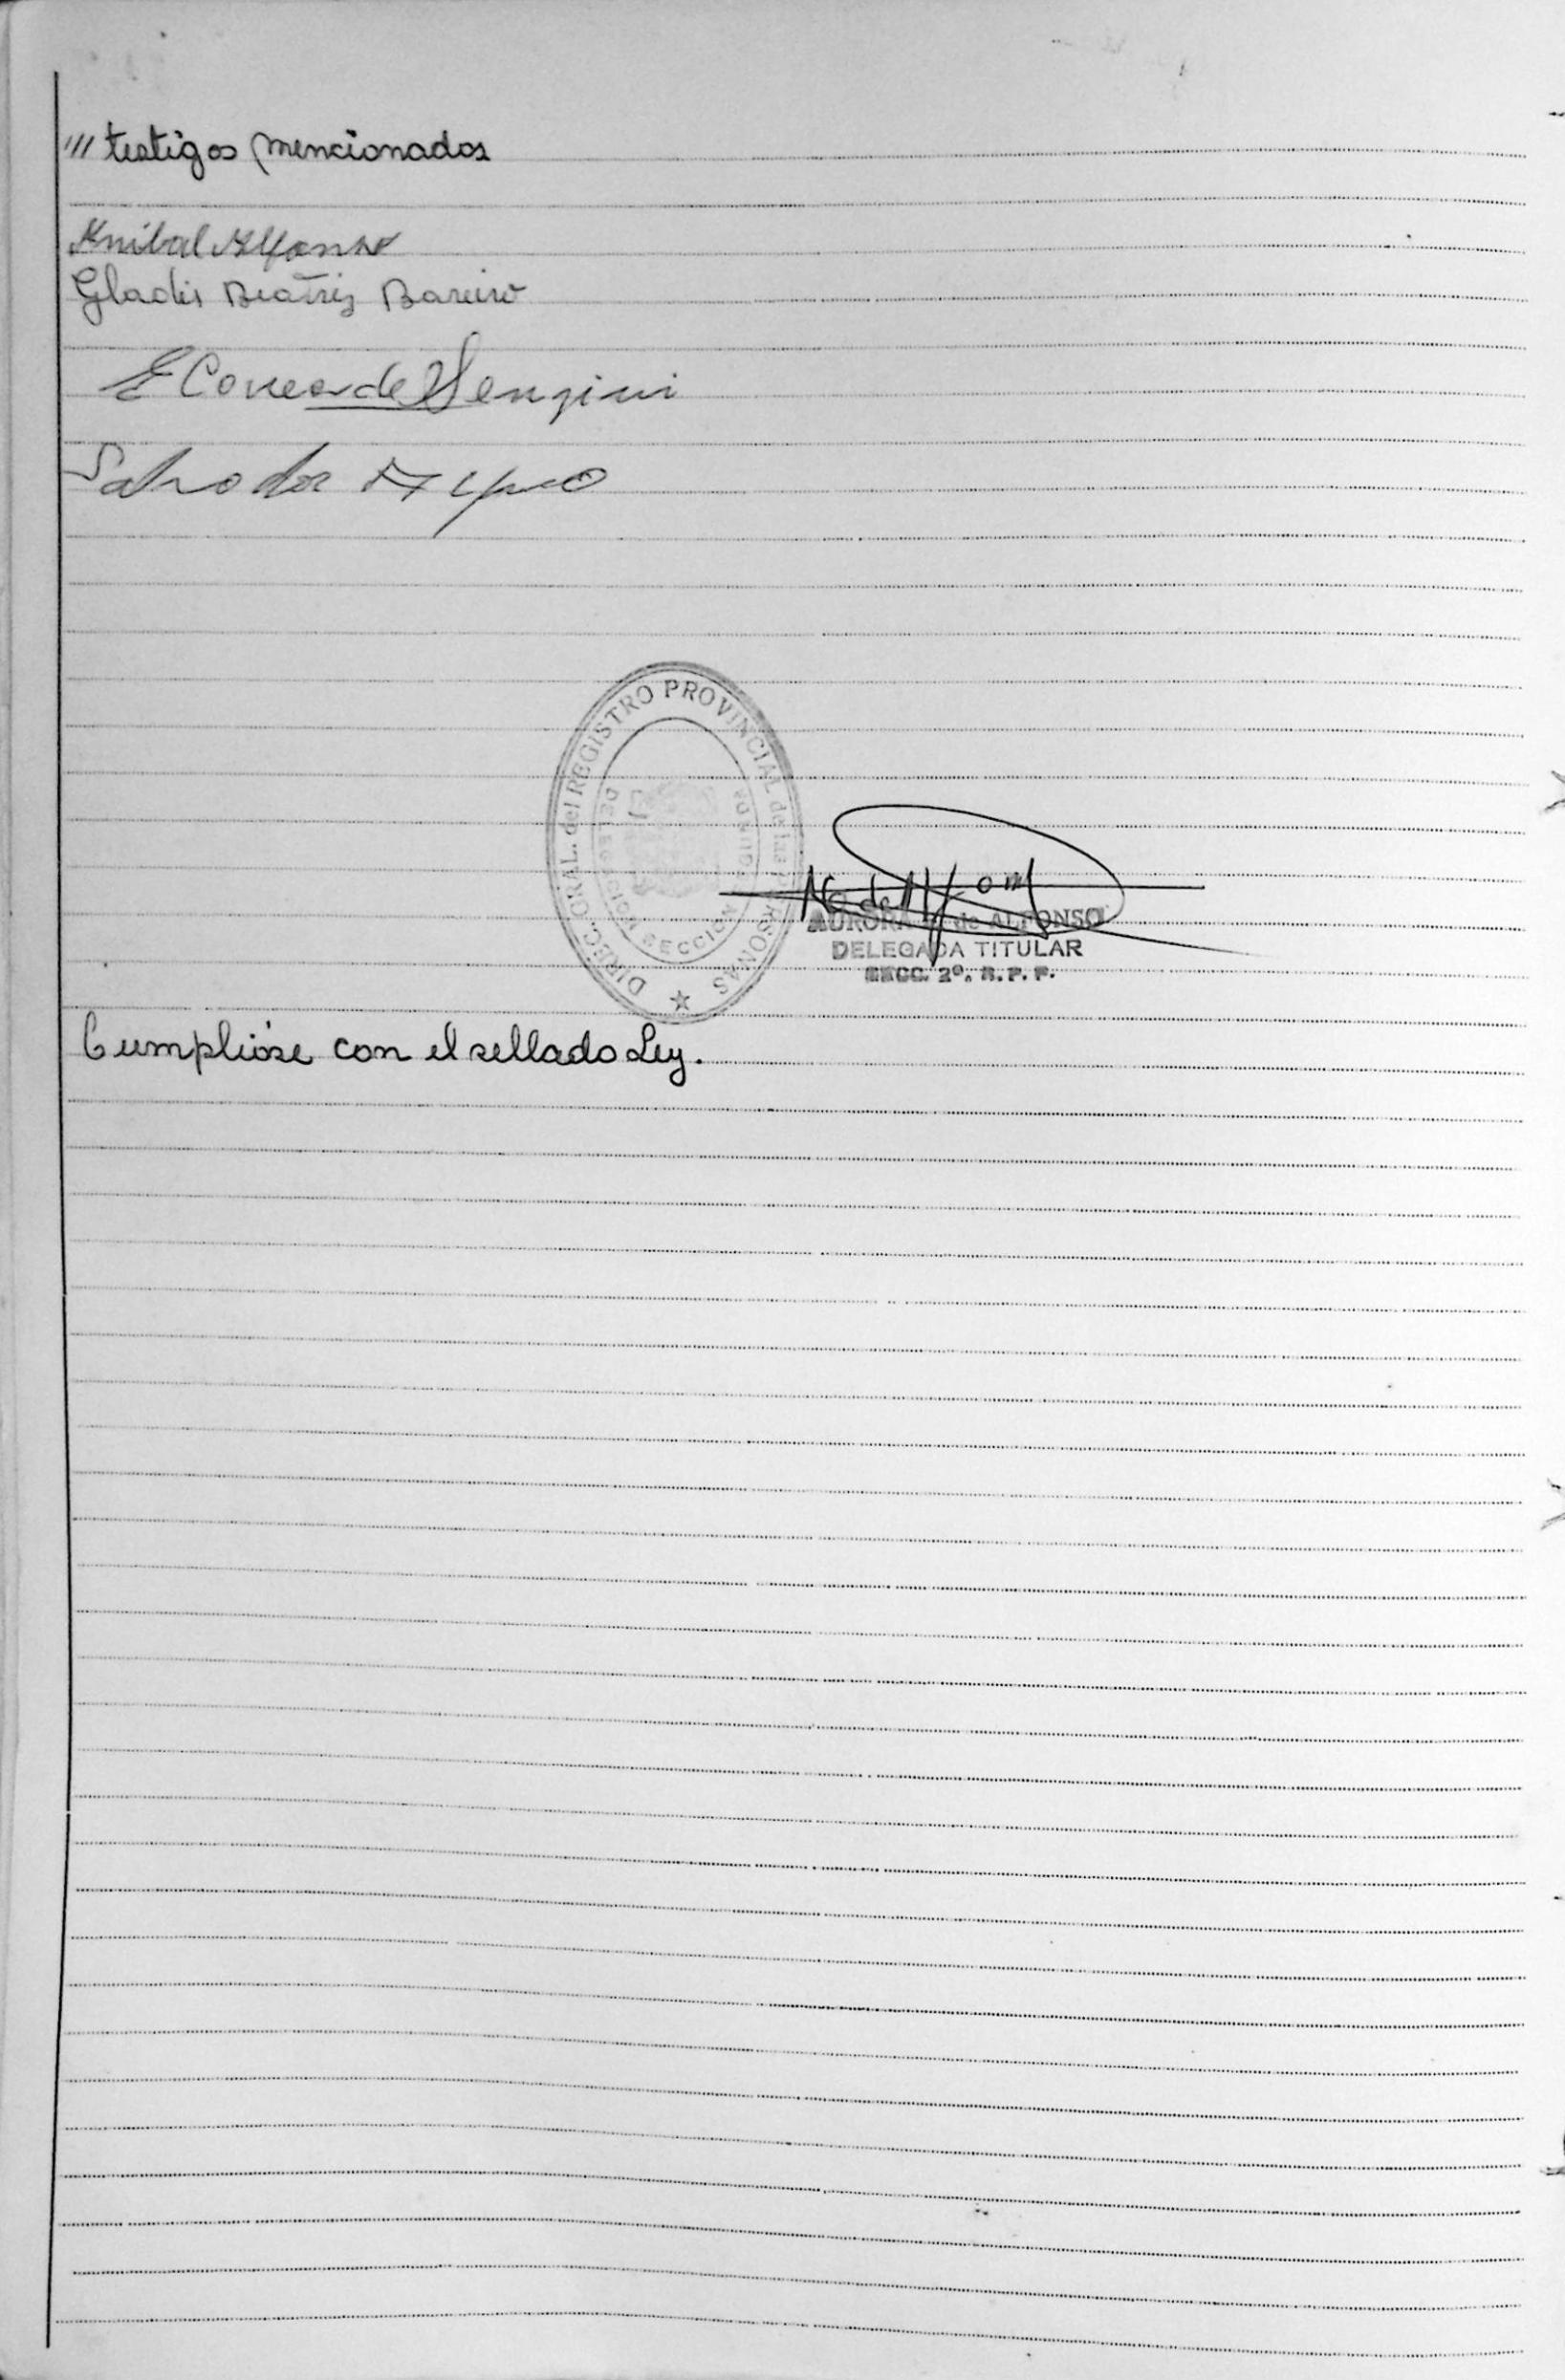 /// testigos mencionados
Anibal Alfonso
Gladis Beatriz Bareiro
E Correa de
Salvador
DIREC. GRAL. del REGISTRO PROVINCIAL de las PERSONAS
SECCION
AURORA de ALFONSO
DELEGADA TITULAR
SECC. 2º. R. P. P.
Cumplióse con el sellado Ley.